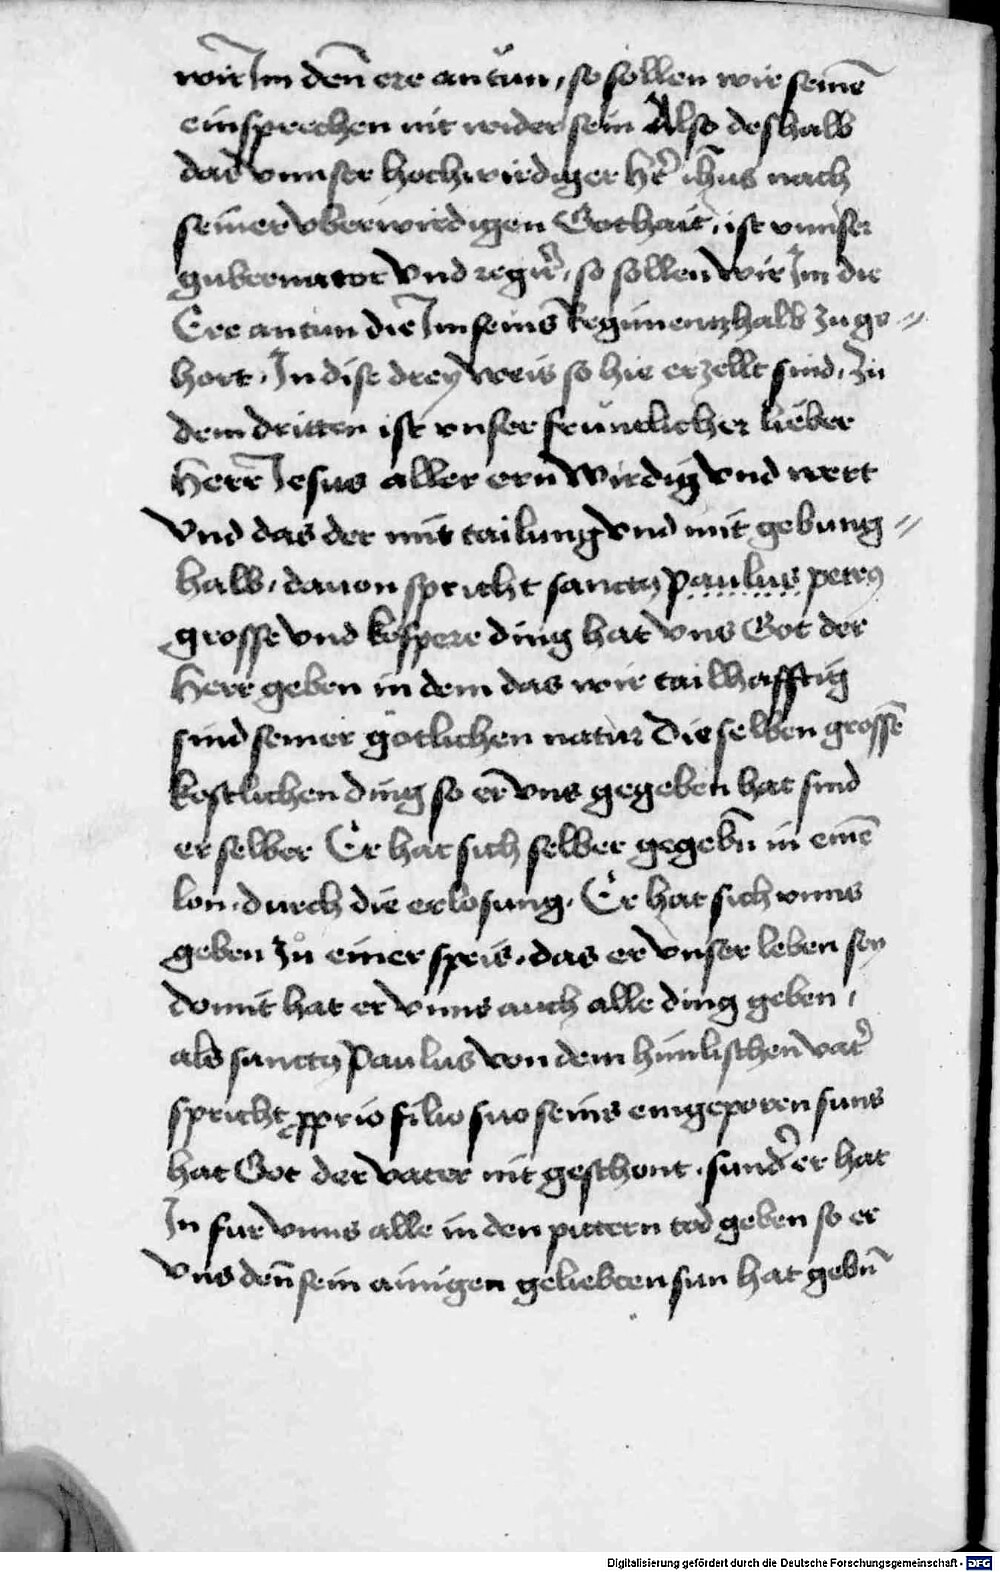 wir Im den̄ ere an tun, so sollen wir seinē
einsprechen nit wider sein Also deshalb
das vnnser hochwirdiger H̄r ih̄us nach
seiner vberwirdigen Gothait, ist vnnser
gubernator vnd regir̄, so sollen wir Im die
Ere an tun die Im seins Regimentzhalb zu ge=
hort. In dise drey weis so hie erzellt sind. Zu
dem dritten ist vnser fruntlicher lieber
Herr Jesus aller ern wirdig vnd wert
vnd das der mit tailung vnd mit gebung=
halb. dauon spricht sanctus paulus petrus
grosse vnd kospere ding hat vns Got der
Herr geben in dem das wir tailhafftig
sind seiner gotlichen natur Die selben grossē
kostlichen ding so er vns gegeben hat sind
er selber Er hat sich selber gegebn̄ in einē
lon. durch die erlosung. Er hat sich vnns
geben zů einer speis. das er vnser leben sey
domit hat er vnns auch alle ding geben,
als sanctus Paulus von dem himlischen vat̄
spricht proprio filio suo seins eingeporen suns
hat Got der vater nit geschont. sund̄ er hat
In fur vnns alle in den pittern tod geben so er
vns den̄ sein ainigen geliebten sun hat gebn̄
Digitalisierung gefördert durch die Deutsche Forschungsgemeinschaft - DFG